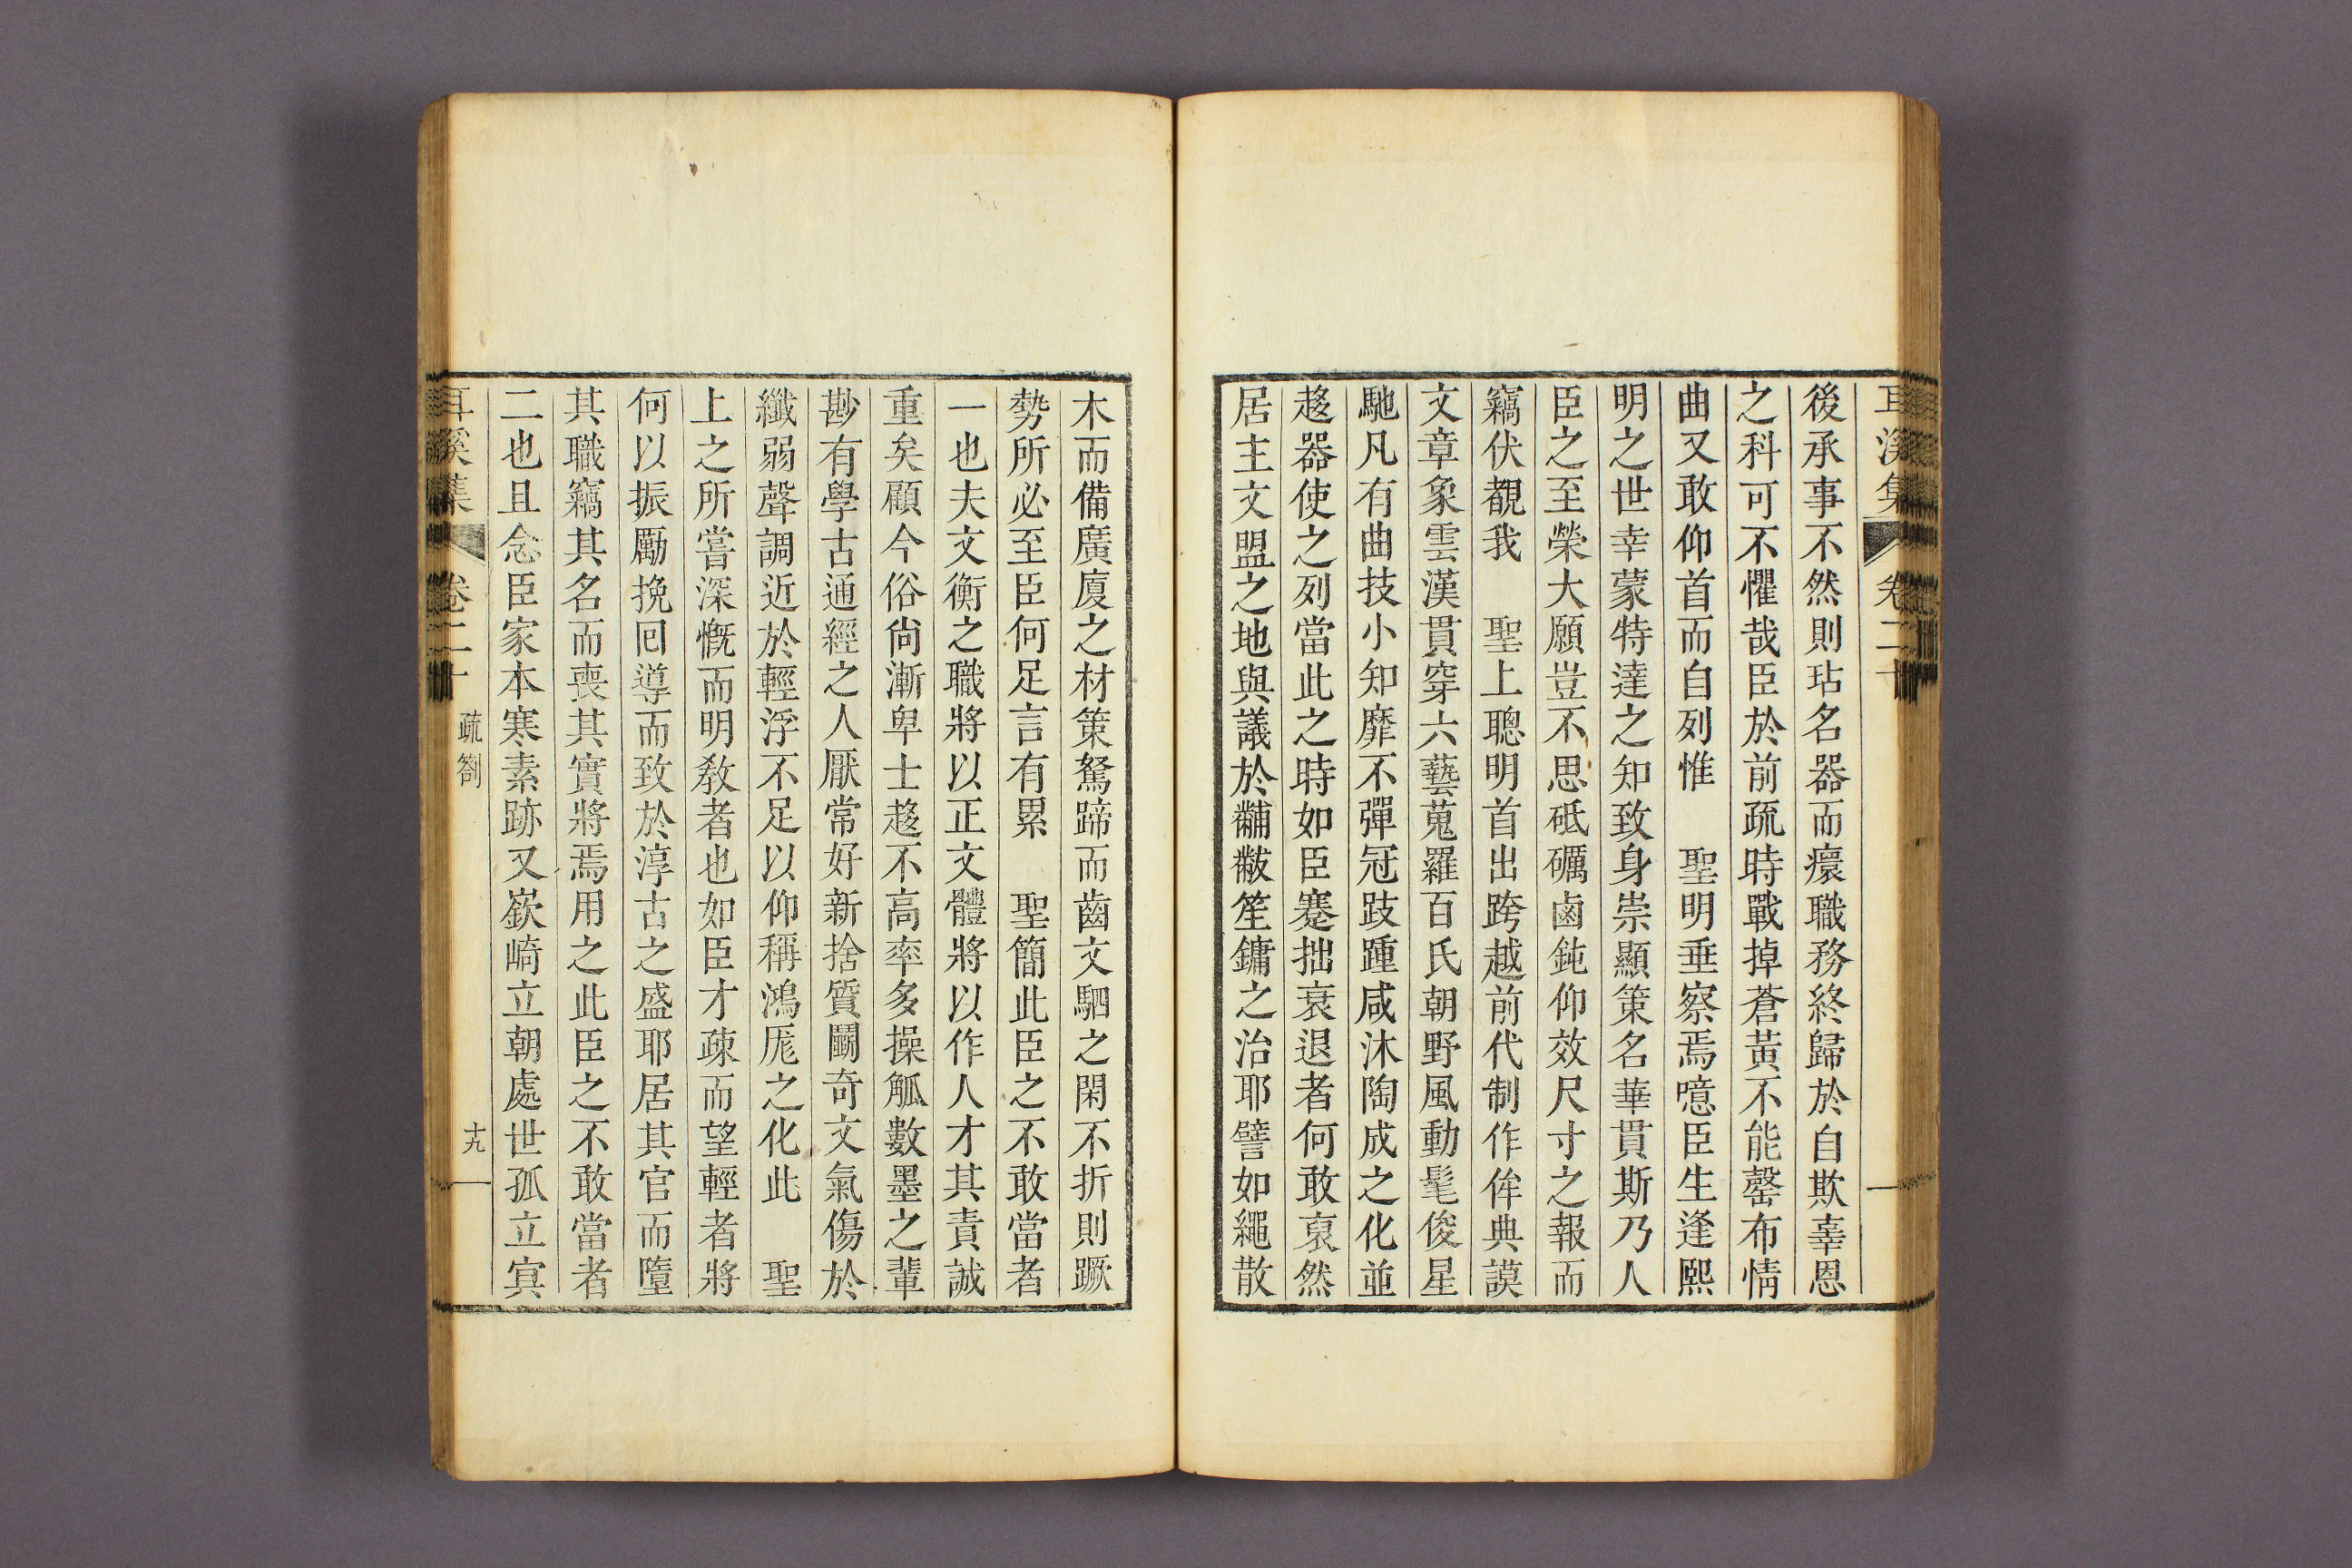 耳溪集 卷二十
後承事不然則玷名器而癏職務終歸於自欺辜恩
之科可不懼哉臣於前疏時戰掉蒼黃不能罄布情
曲又敢仰首而自列惟 聖明垂察焉噫臣生逢熙
明之世幸蒙特達之知致身崇顯策名華貫斯乃人
臣之至榮大願豈不思砥礪鹵鈍仰效尺寸之報而
竊伏覩我 聖上聰明首出跨越前代制作侔典謨
文章象雲漢貫穿六藝蒐羅百氏朝野風動髦俊星
馳凡有曲技小知靡不彈冠跂踵咸沐陶成之化並
趍器使之列當此之時如臣蹇拙衰退者何敢裒然
居主文盟之地與議於黼黻笙鏞之治耶譬如繩散
木而備廣廈之材策駑蹄而齒文駟之閑不折則蹶
勢所必至臣何足言有累 聖簡此臣之不敢當者
一也夫文衡之職將以正文體將以作人才其責誠
重矣顧今俗尙漸卑士趍不高率多操觚數墨之輩
尠有學古通經之人厭常好新捨質鬭奇文氣傷於
纖弱聲調近於輕浮不足以仰稱鴻厖之化此 聖
上之所嘗深慨而明敎者也如臣才疎而望輕者將
何以振勵挽回導而致於淳古之盛耶居其官而墮
其職竊其名而喪其實將焉用之此臣之不敢當者
二也且念臣家本寒素跡又嶔崎立朝處世孤立寡
耳溪集 卷二十 疏箚 十九